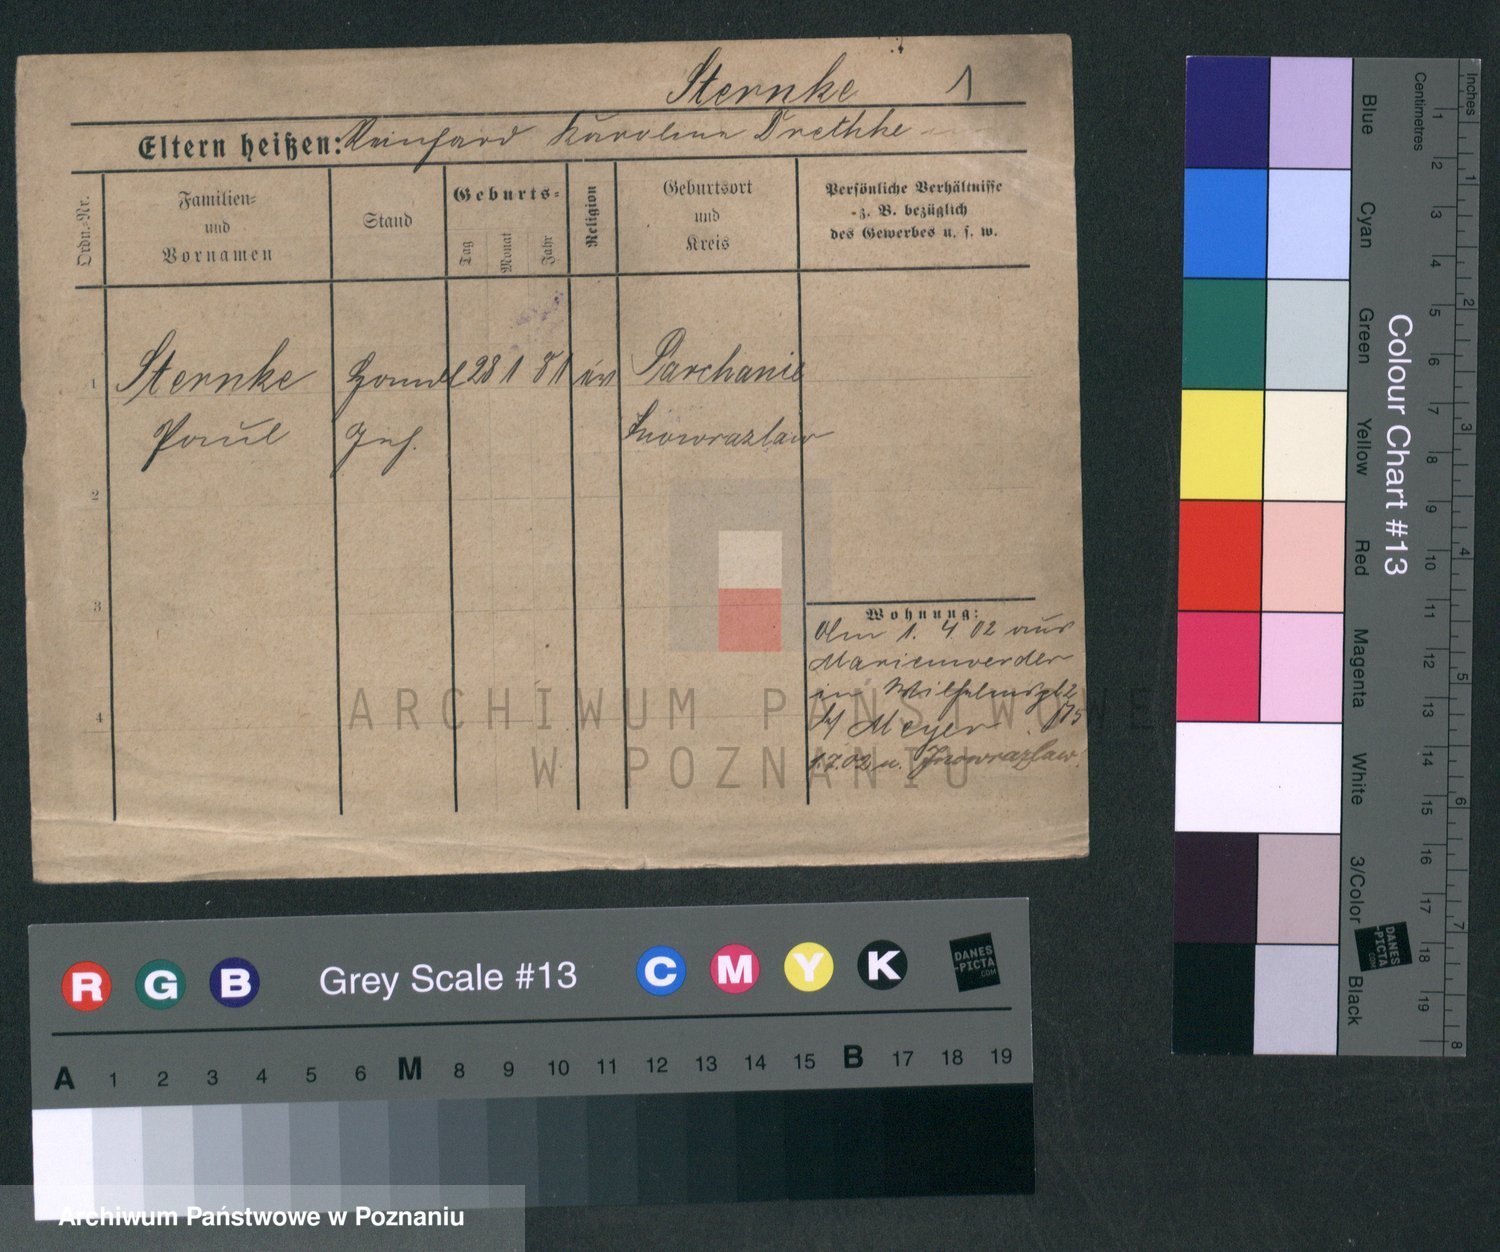 Sternke 1
Eltern heißen: Reinhard Karoline Drethke
Ordn.-Nr.
Familien-
und
Vornamen
Stand
Geburts-
Tag
Monat
Jahr
Religion
Geburtsort
und
Kreis
Persönliche Verhältnisse
z. B. bezüglich
des Gewerbes u. s. w.
1 Sternke 28 1 81 ev Parchanie
Paul Inowrazlaw
2
3
4
Wohnung:
Am 1. 4 02 aus
Marienwerder
in Wilhelmspl 2
b/ Meyer 175
1.7.02 n. Inowrazlaw.
ARCHIWUM PAŃSTWOWE
W POZNANIU
R G B Grey Scale #13 C M Y K
DANES
-PICTA
.COM
A 1 2 3 4 5 6 M 8 9 10 11 12 13 14 15 B 17 18 19
Archiwum Państwowe w Poznaniu
Colour Chart #13
Blue
Cyan
Green
Yellow
Red
Magenta
White
3/Color
Black
Inches
1 2 3 4 5 6 7 8
Centimetres
1 2 3 4 5 6 7 8 9 10 11 12 13 14 15 16 17 18 19
DANES
-PICTA
.COM